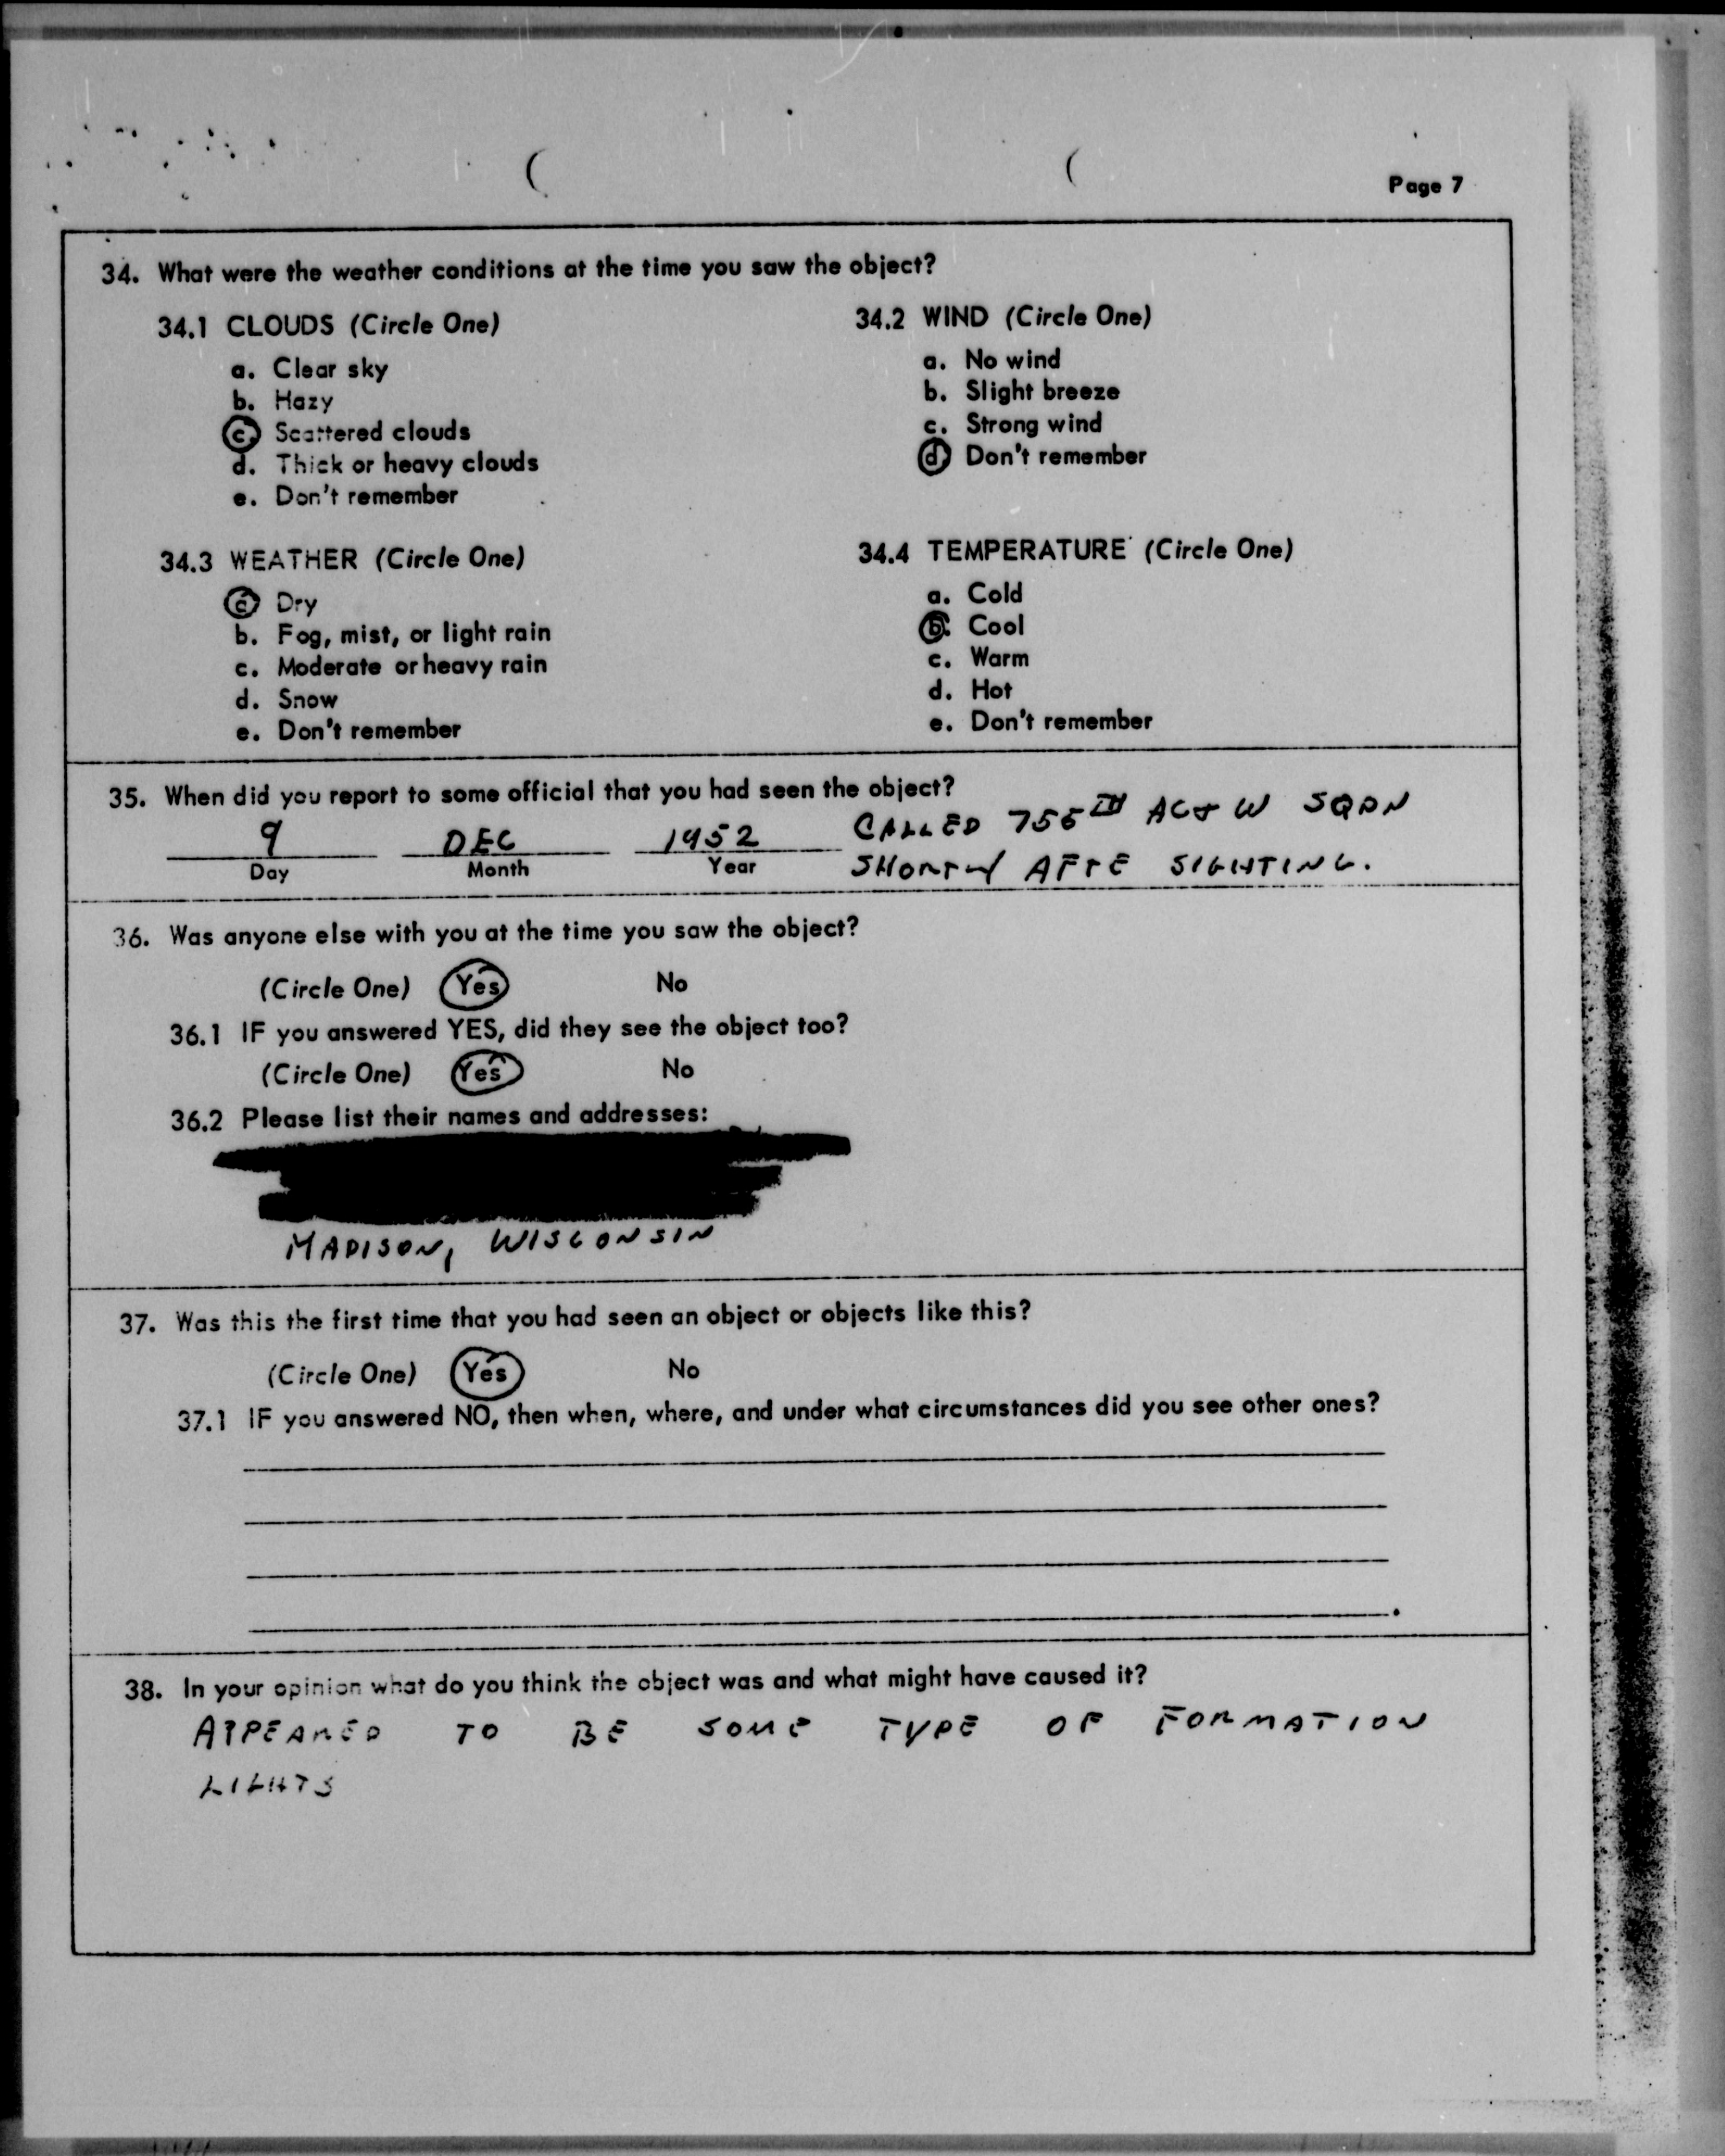 Page 7
34. What were the weather conditions at the time you saw the object?
34.1 CLOUDS (Circle One)
a. Clear sky
b. Hazy
c. Scattered clouds
d. Thick or heavy clouds
e. Don't remember
34.2 WIND (Circle One)
a. No wind
b. Slight breeze
c. Strong wind
d. Don't remember
34.3 WEATHER (Circle One)
a. Dry
b. Fog, mist, or light rain
c. Moderate or heavy rain
d. Snow
e. Don't remember
34.4 TEMPERATURE (Circle One)
a. Cold
b. Cool
c. Warm
d. Hot
e. Don't remember
35. When did you report to some official that you had seen the object?
9 DEC 1952
Day Month Year
CALLED 756TH AC&W SQDN
SHORTLY AFTE SIGHTING.
36. Was anyone else with you at the time you saw the object?
(Circle One) Yes No
36.1 IF you answered YES, did they see the object too?
(Circle One) Yes No
36.2 Please list their names and addresses:
MADISON, WISCONSIN
37. Was this the first time that you had seen an object or objects like this?
(Circle One) Yes No
37.1 IF you answered NO, then when, where, and under what circumstances did you see other ones?
38. In your opinion what do you think the object was and what might have caused it?
APPEARED TO BE SOME TYPE OF FORMATION
LIGHTS